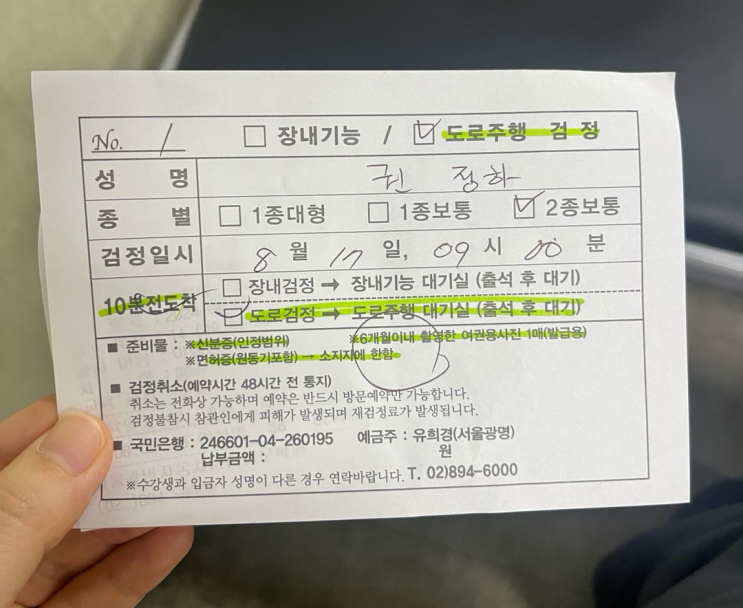 No. 1 □ 장내기능 / ☑ 도로주행 검정
성 명 권 정하
종 별 □ 1종대형 □ 1종보통 ☑ 2종보통
검정일시 8 월 17 일, 09 시 00 분
10분전도착 □ 장내검정 → 장내기능 대기실 (출석 후 대기)
☑ 도로검정 → 도로주행 대기실 (출석 후 대기)
■ 준비물 : ※신분증(인정범위) ※6개월이내 촬영한 여권용사진 1매(발급용)
※면허증(원동기포함) → 소지자에 한함
■ 검정취소(예약시간 48시간 전 통지)
취소는 전화상 가능하며 예약은 반드시 방문예약만 가능합니다.
검정불참시 참관인에게 피해가 발생되며 재검정료가 발생됩니다.
■ 국민은행 : 246601-04-260195 예금주 : 유희경(서울광명)
납부금액 : 원
※수강생과 입금자 성명이 다른 경우 연락바랍니다. T. 02)894-6000